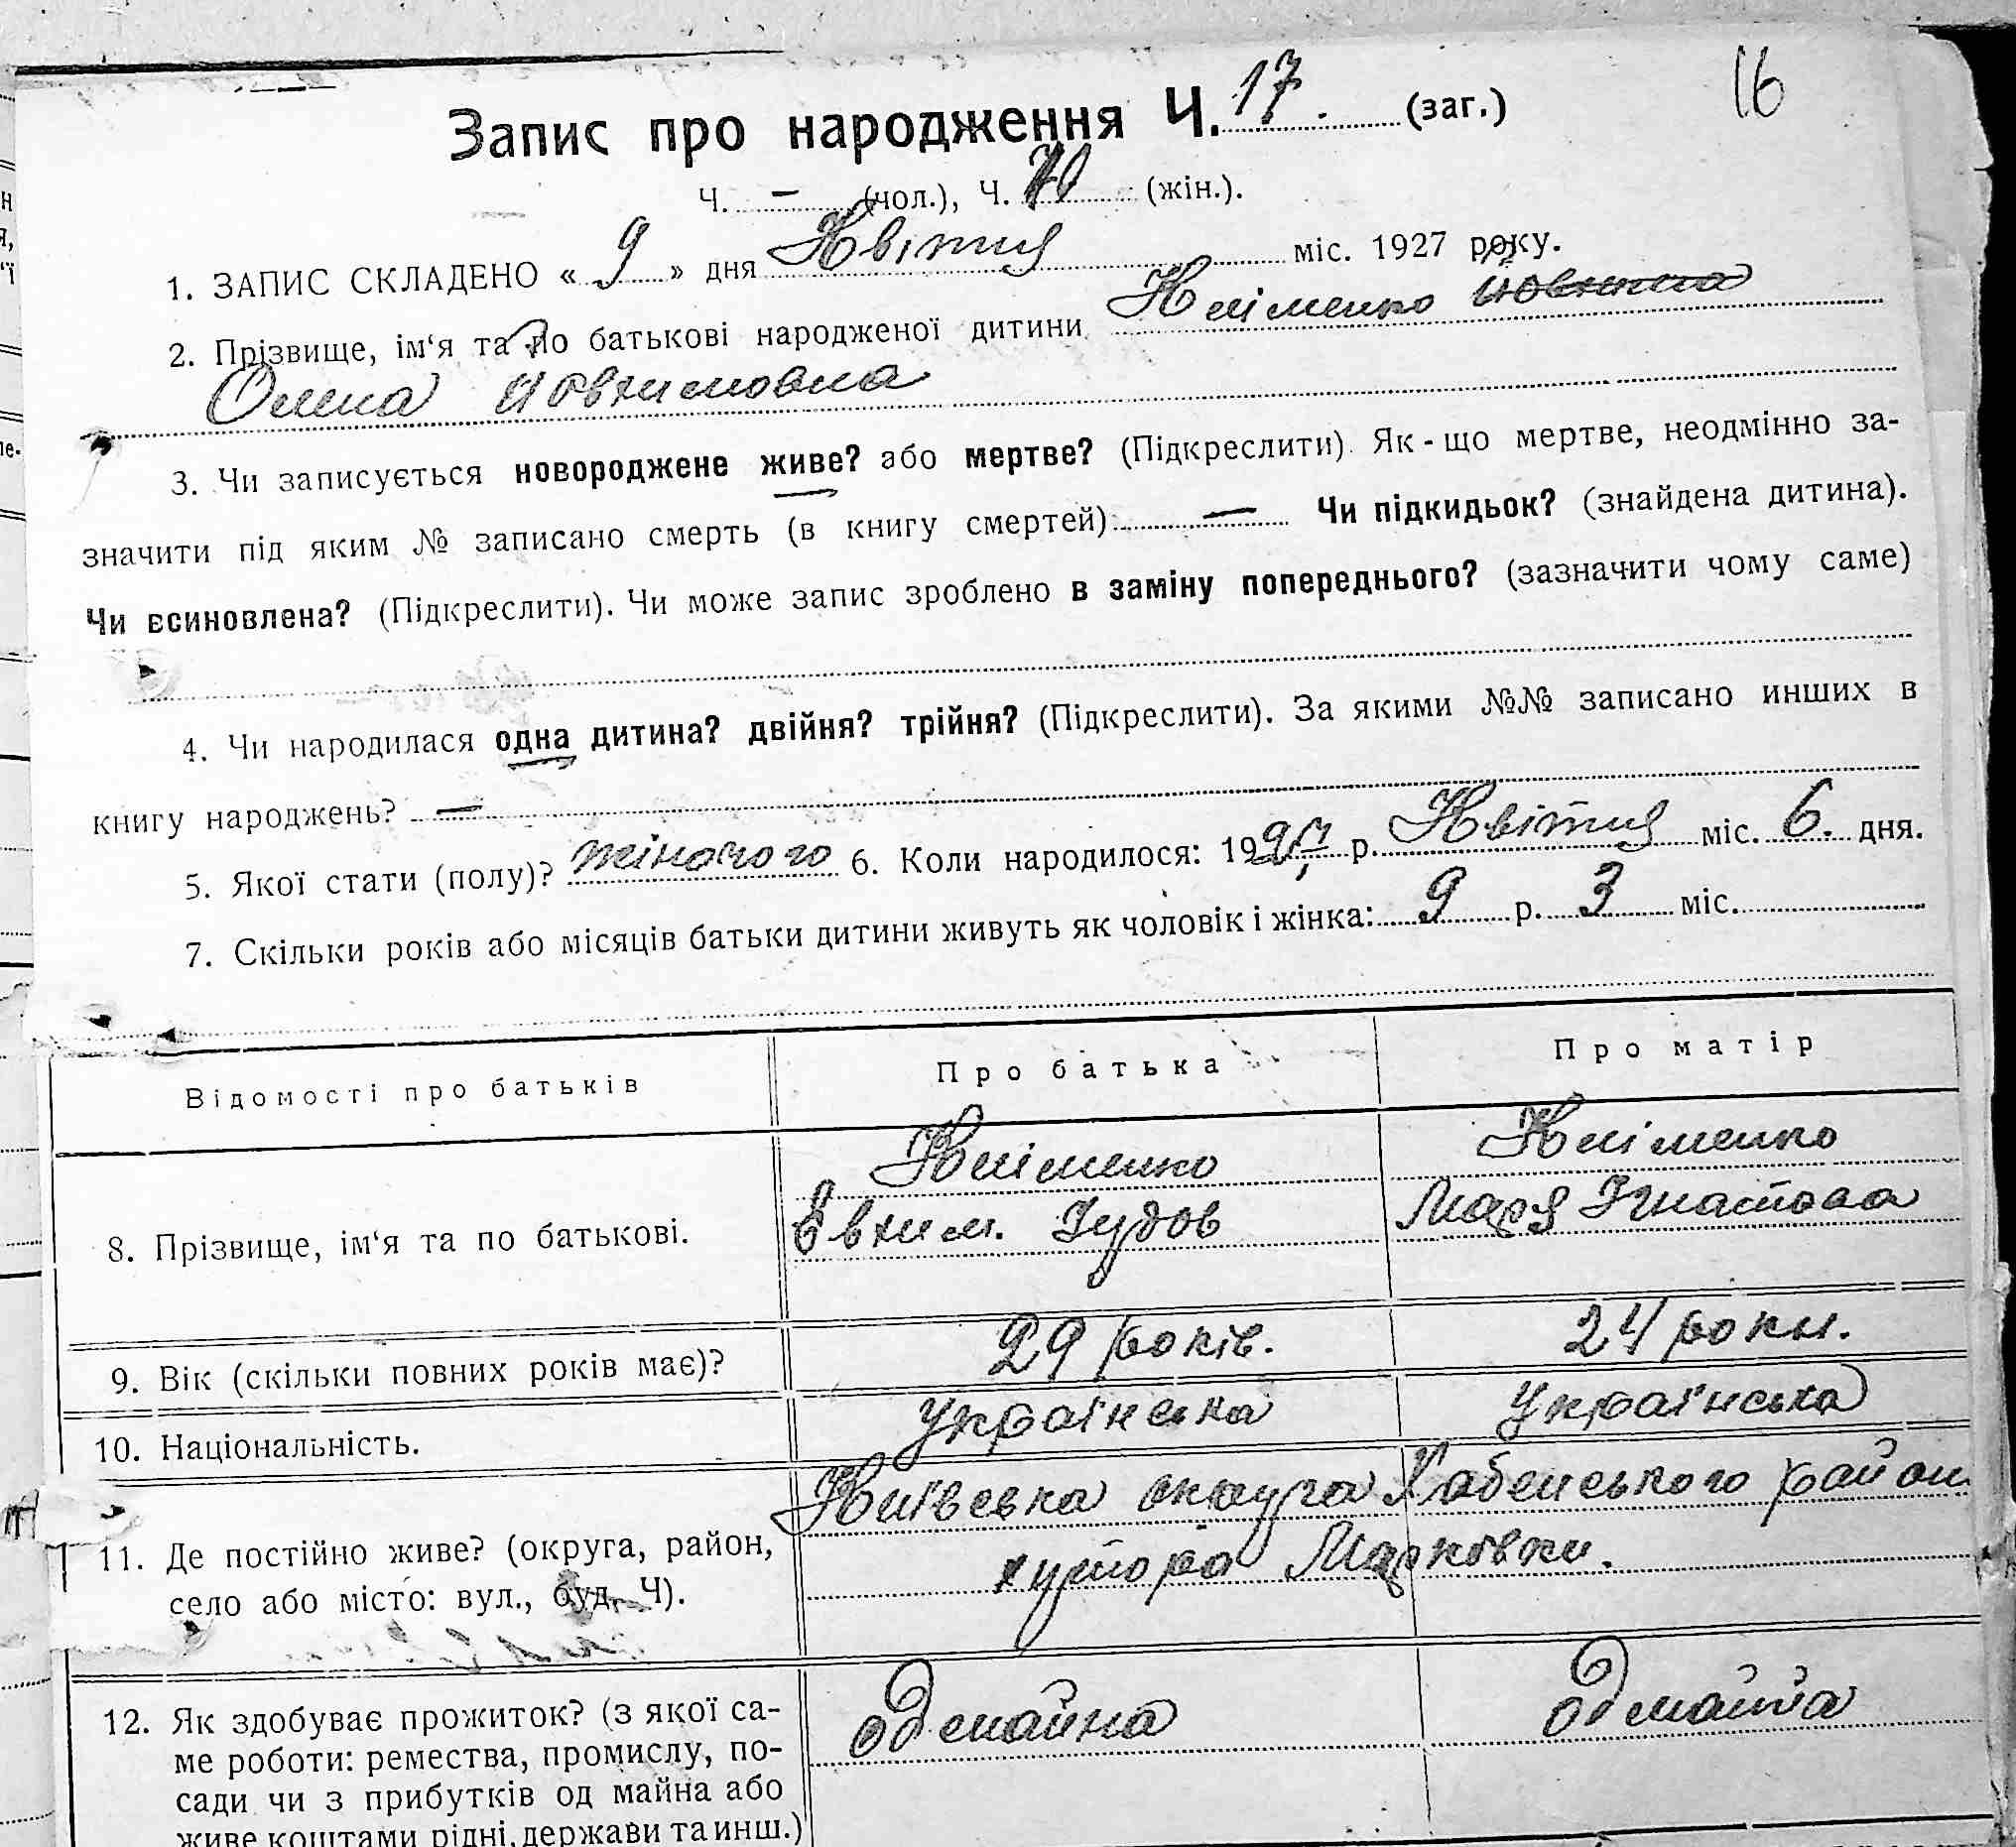 16
Запис про народження Ч. 17. (заг.)
Ч. — (чол.), Ч. 10 (жін.).
1. ЗАПИС СКЛАДЕНО « 9 » дня Квітня міс. 1927 року.
2. Прізвище, ім'я та по батькові народженої дитини Кліменко
Олена Йовхимовна
3. Чи записується новороджене живе? або мертве? (Підкреслити). Як-що мертве, неодмінно за-
значити під яким № записано смерть (в книгу смертей): — Чи підкидьок? (знайдена дитина).
Чи всиновлена? (Підкреслити). Чи може запис зроблено в заміну попереднього? (зазначити чому саме)
4. Чи народилася одна дитина? двійня? трійня? (Підкреслити). За якими №№ записано инших в
книгу народжень? —
5. Якої стати (полу)? жіночого 6. Коли народилося: 1927 р. Квітня міс. 6. дня.
7. Скільки років або місяців батьки дитини живуть як чоловік і жінка: 9 р. 3 міс.
Відомості про батьків Про батька Про матір
8. Прізвище, ім'я та по батькові.
Кліменко Кліменко
Євхим. Іудов Маря Ігнатова
9. Вік (скільки повних років має)? 29 років. 24 роки.
10. Національність. Українська Українська
11. Де постійно живе? (округа, район,
село або місто: вул., буд. Ч).
Київська округа Хабенського район
хутора Марковки.
12. Як здобуває прожиток? (з якої са-
ме роботи: ремества, промислу, по-
сади чи з прибутків од майна або
живе коштами рідні, держави та инш.)
од майна од майна